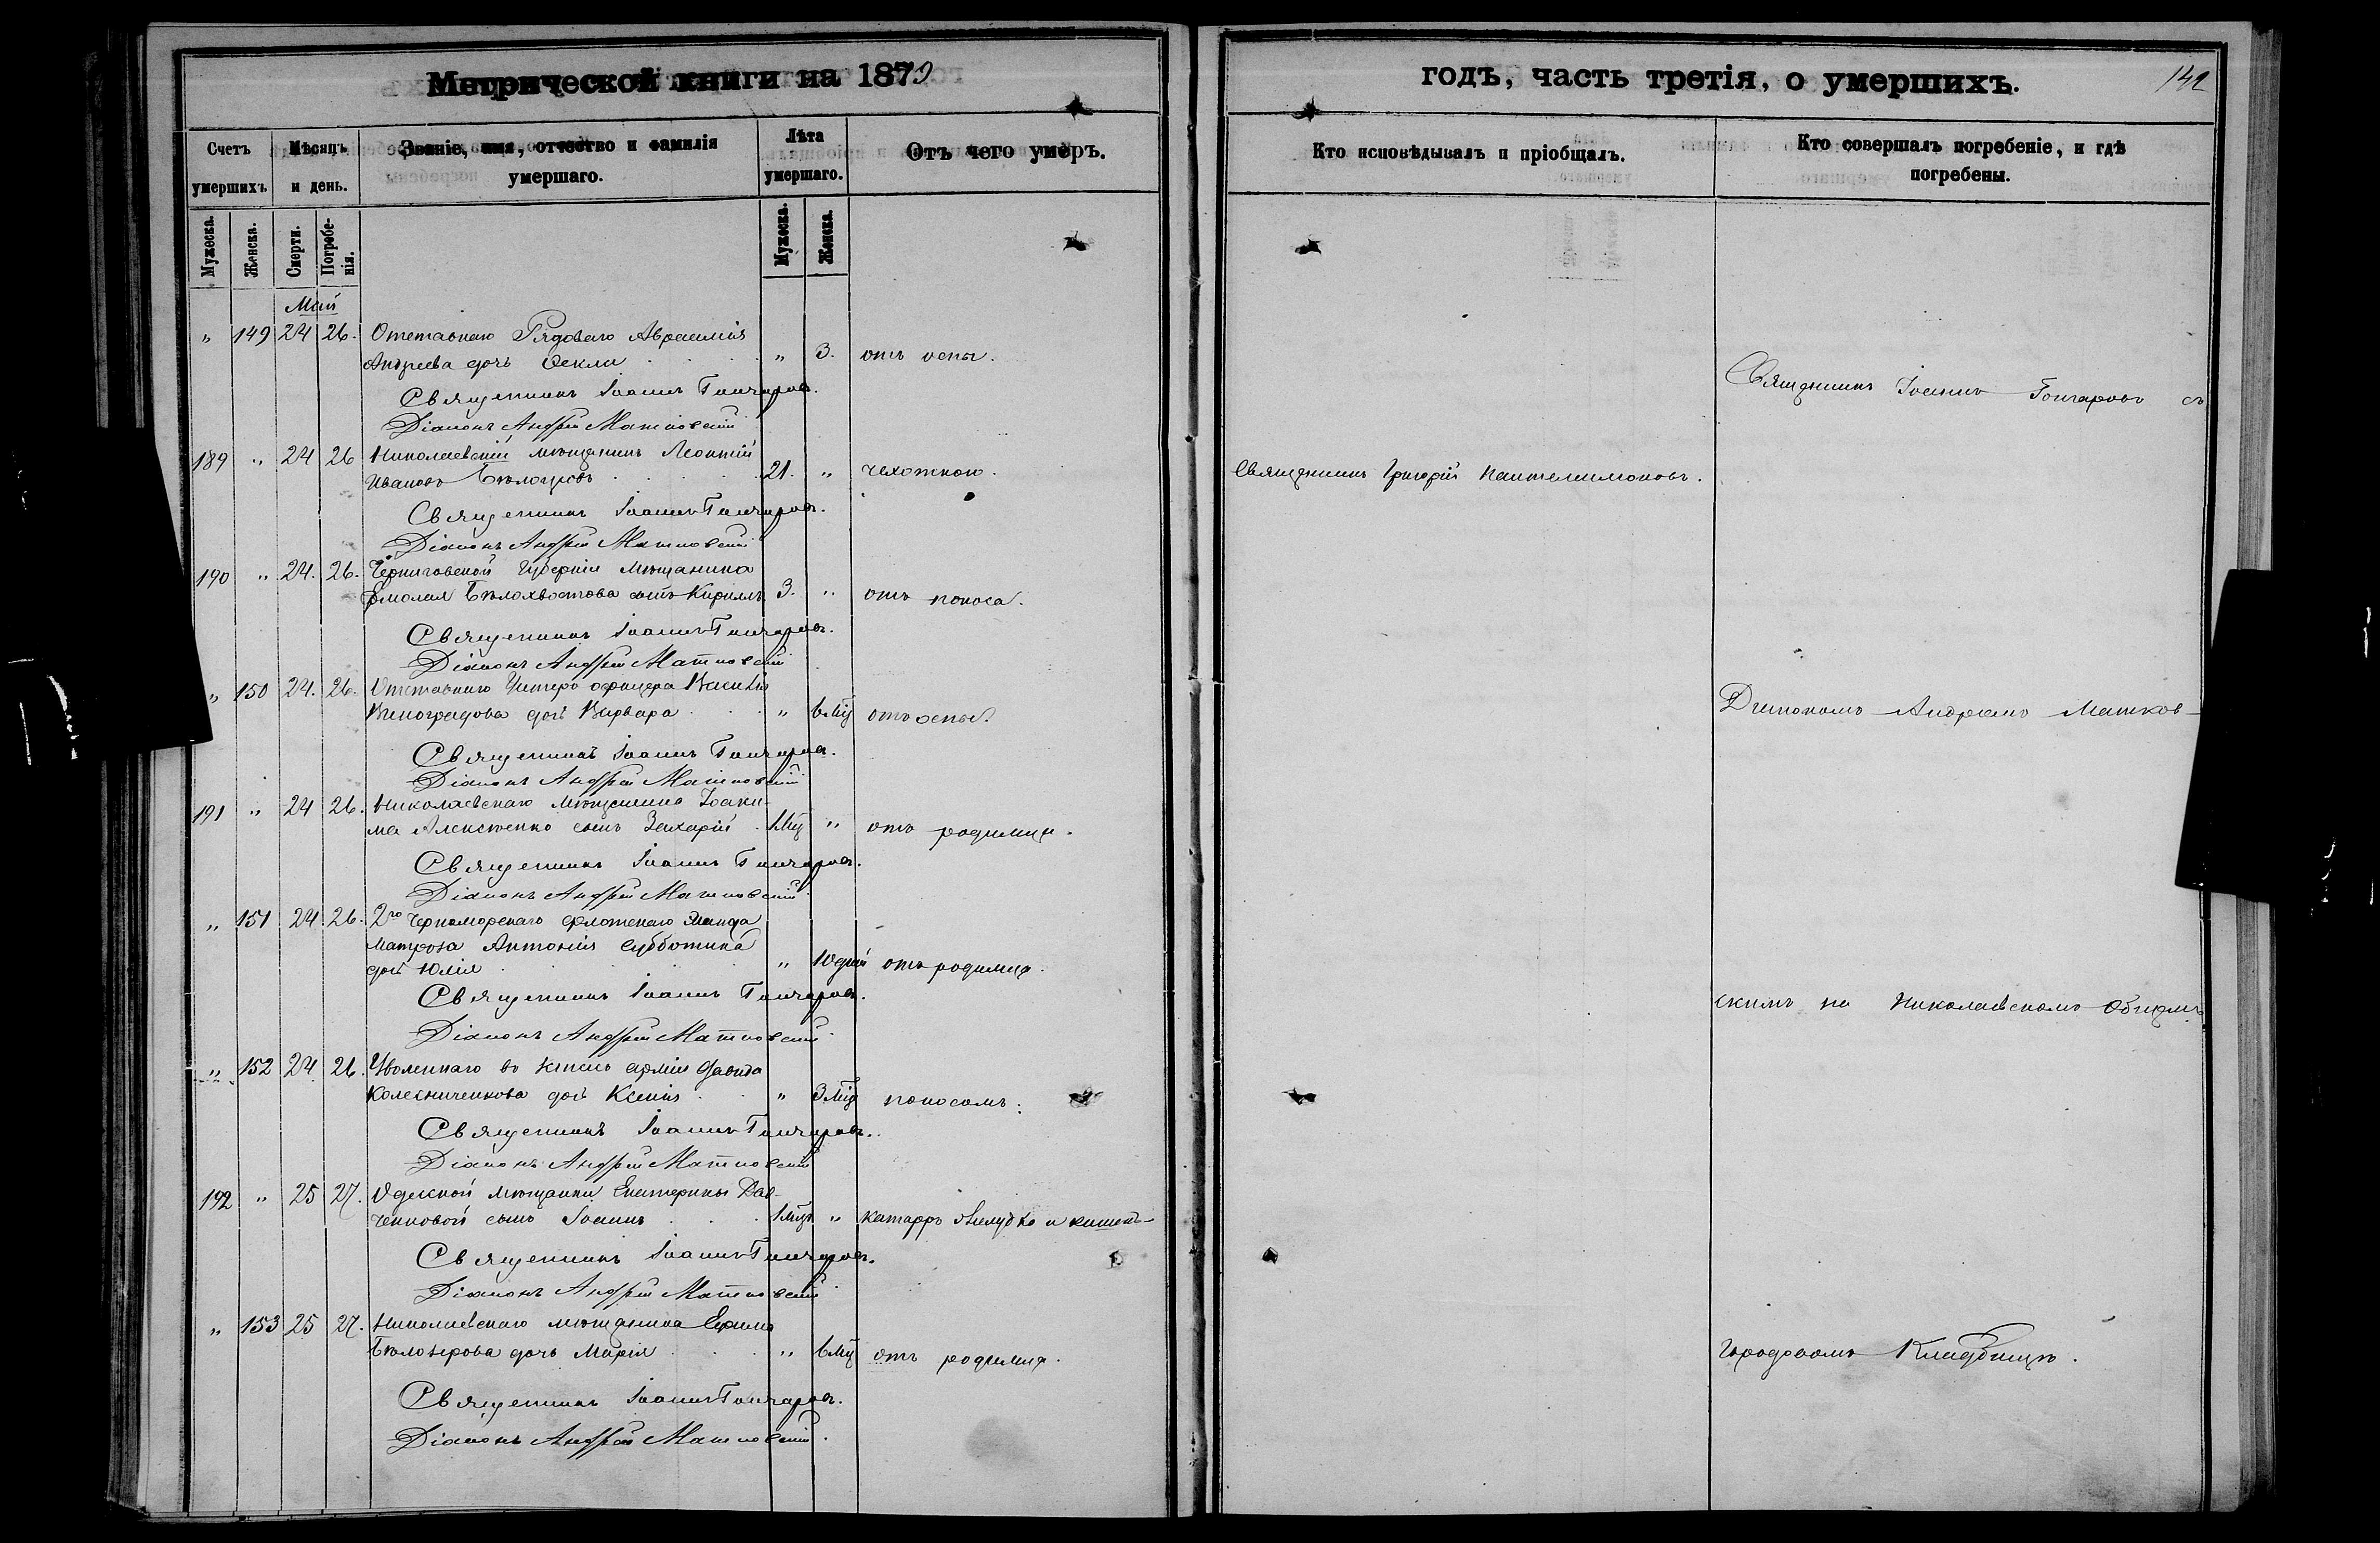 Метрической книги на 1879
Счетъ умершихъ
Мѣсяцъ и день.
Званіе, имя, отчество и фамилія умершаго.
Лѣта умершаго.
Отъ чего умеръ.
Мужеска. Женска. Смерти. Погребенія. Мужеска. Женска.
Май
" 149 24 26. Отставнаго Рядоваго Авраамія
Андреева дочь Текли " 3. отъ оспы.
Священникъ Іоаннъ Гончаровъ.
Діаконъ Андрей Матковскій
189 " 24 26 Николаевскій мѣщанинъ Леонтій
Ивановъ Бѣлоусовъ 21. " чахоткою.
Священникъ Іоаннъ Гончаровъ.
Діаконъ Андрей Матковскій
190 " 24. 26. Черниговской Губерніи мѣщанина
Ермолая Бѣлохвостова сынъ Кириллъ 3. " отъ поноса.
Священникъ Іоаннъ Гончаровъ.
Діаконъ Андрей Матковскій
" 150 24. 26. Отставнаго Унтеръ офицера Василія
Виноградова дочь Варвара " 6 мц отъ оспы.
Священникъ Іоаннъ Гончаровъ.
Діаконъ Андрей Матковскій
191 " 24 26. Николаевскаго мѣщанина Іоаки-
ма Алексѣенко сынъ Захарій 1 мц " отъ родимца.
Священникъ Іоаннъ Гончаровъ.
Діаконъ Андрей Матковскій
" 151 24 26. 2го Черноморскаго флотскаго Экипажа
матроза Антонія Субботина
дочь Юлія " 10 дней отъ родимца.
Священникъ Іоаннъ Гончаровъ.
Діаконъ Андрей Матковскій
" 152 24 26. Уволеннаго въ запасъ арміи Давида
Колесниченкова дочь Ксенія " 3 мц поносомъ.
Священникъ Іоаннъ Гончаровъ.
Діаконъ Андрей Матковскій
192 " 25 27. Одесской мѣщанки Екатерины
сынъ Іоаннъ 1 мцъ " катарръ желудка и кишекъ
Священникъ Іоаннъ Гончаровъ.
Діаконъ Андрей Матковскій
" 153 25 27. Николаевскаго мѣщанина Ефима
Бѣлозерова дочь Марія " 6 мц отъ родимца.
Священникъ Іоаннъ Гончаровъ.
Діаконъ Андрей Матковскій.
годъ, часть третія, о умершихъ.
142
Кто исповѣдывалъ и пріобщалъ.
Кто совершалъ погребеніе, и гдѣ погребены.
Священникъ Іоаннъ Гончаровъ съ
Священникъ Григорій Пантелимоновъ.
Діакономъ Андреемъ Матков-
скимъ на Николаевскомъ Общемъ
Городскомъ Кладбищѣ.